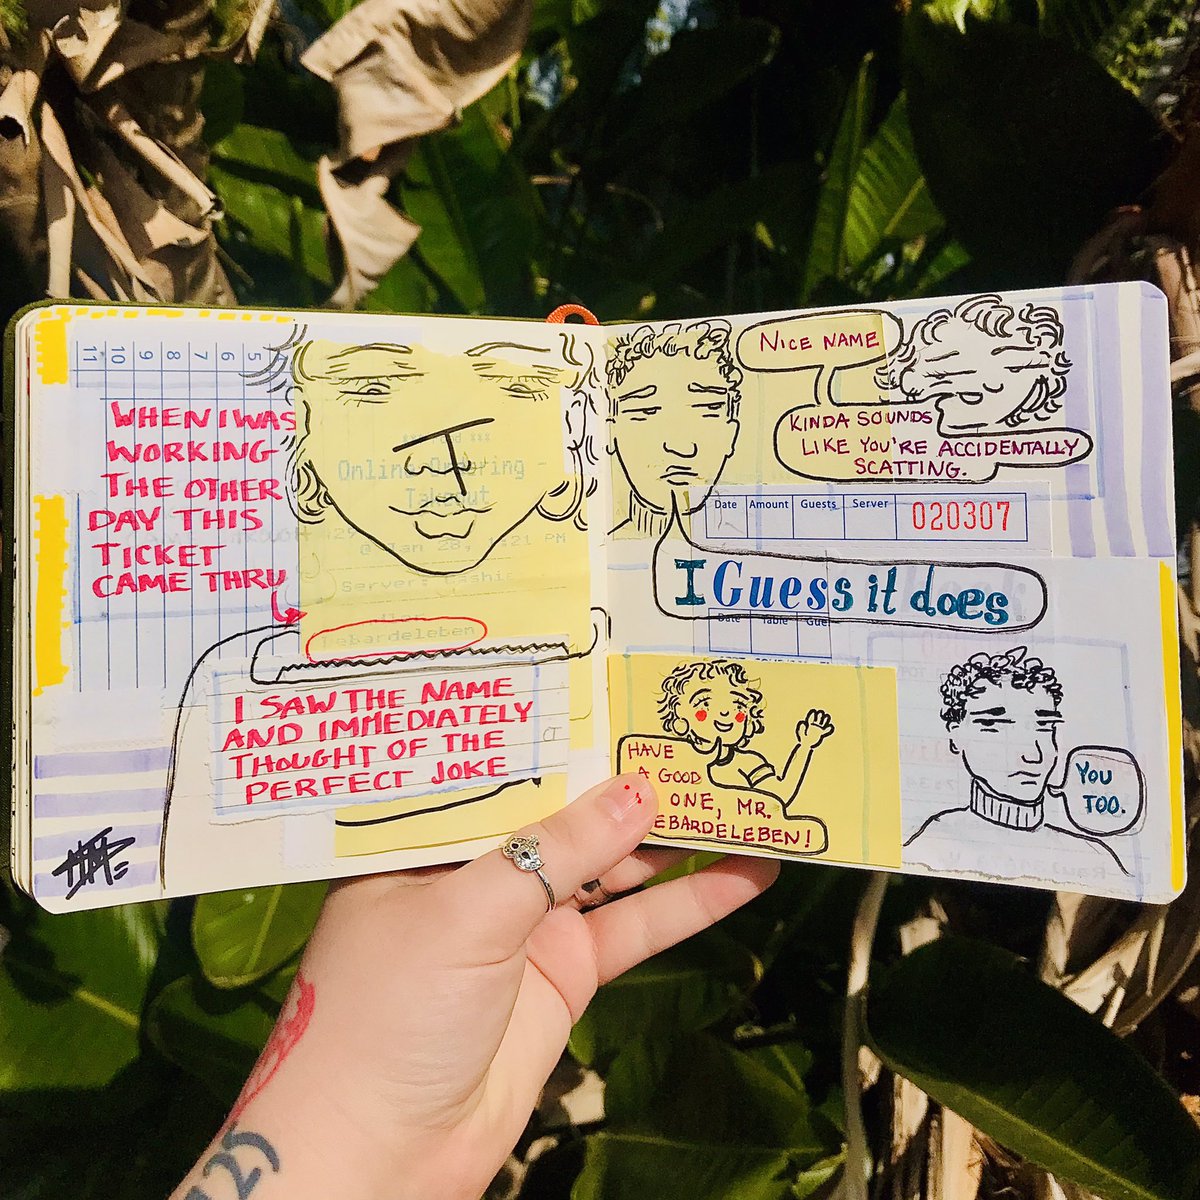 11 10 9 8 7 6 5
WHEN I WAS
WORKING
THE OTHER
DAY THIS
TICKET
CAME THRU
Online Ordering -
Takeout
Server:
Debardeleben
I SAW THE NAME
AND IMMEDIATELY
THOUGHT OF THE
PERFECT JOKE
CT
NICE NAME
KINDA SOUNDS
LIKE YOU'RE ACCIDENTALLY
SCATTING.
Date Amount Guests Server
020307
I Guess it does
Date Table
HAVE
A GOOD
ONE, MR.
EBARDELEBEN!
YOU
TOO.